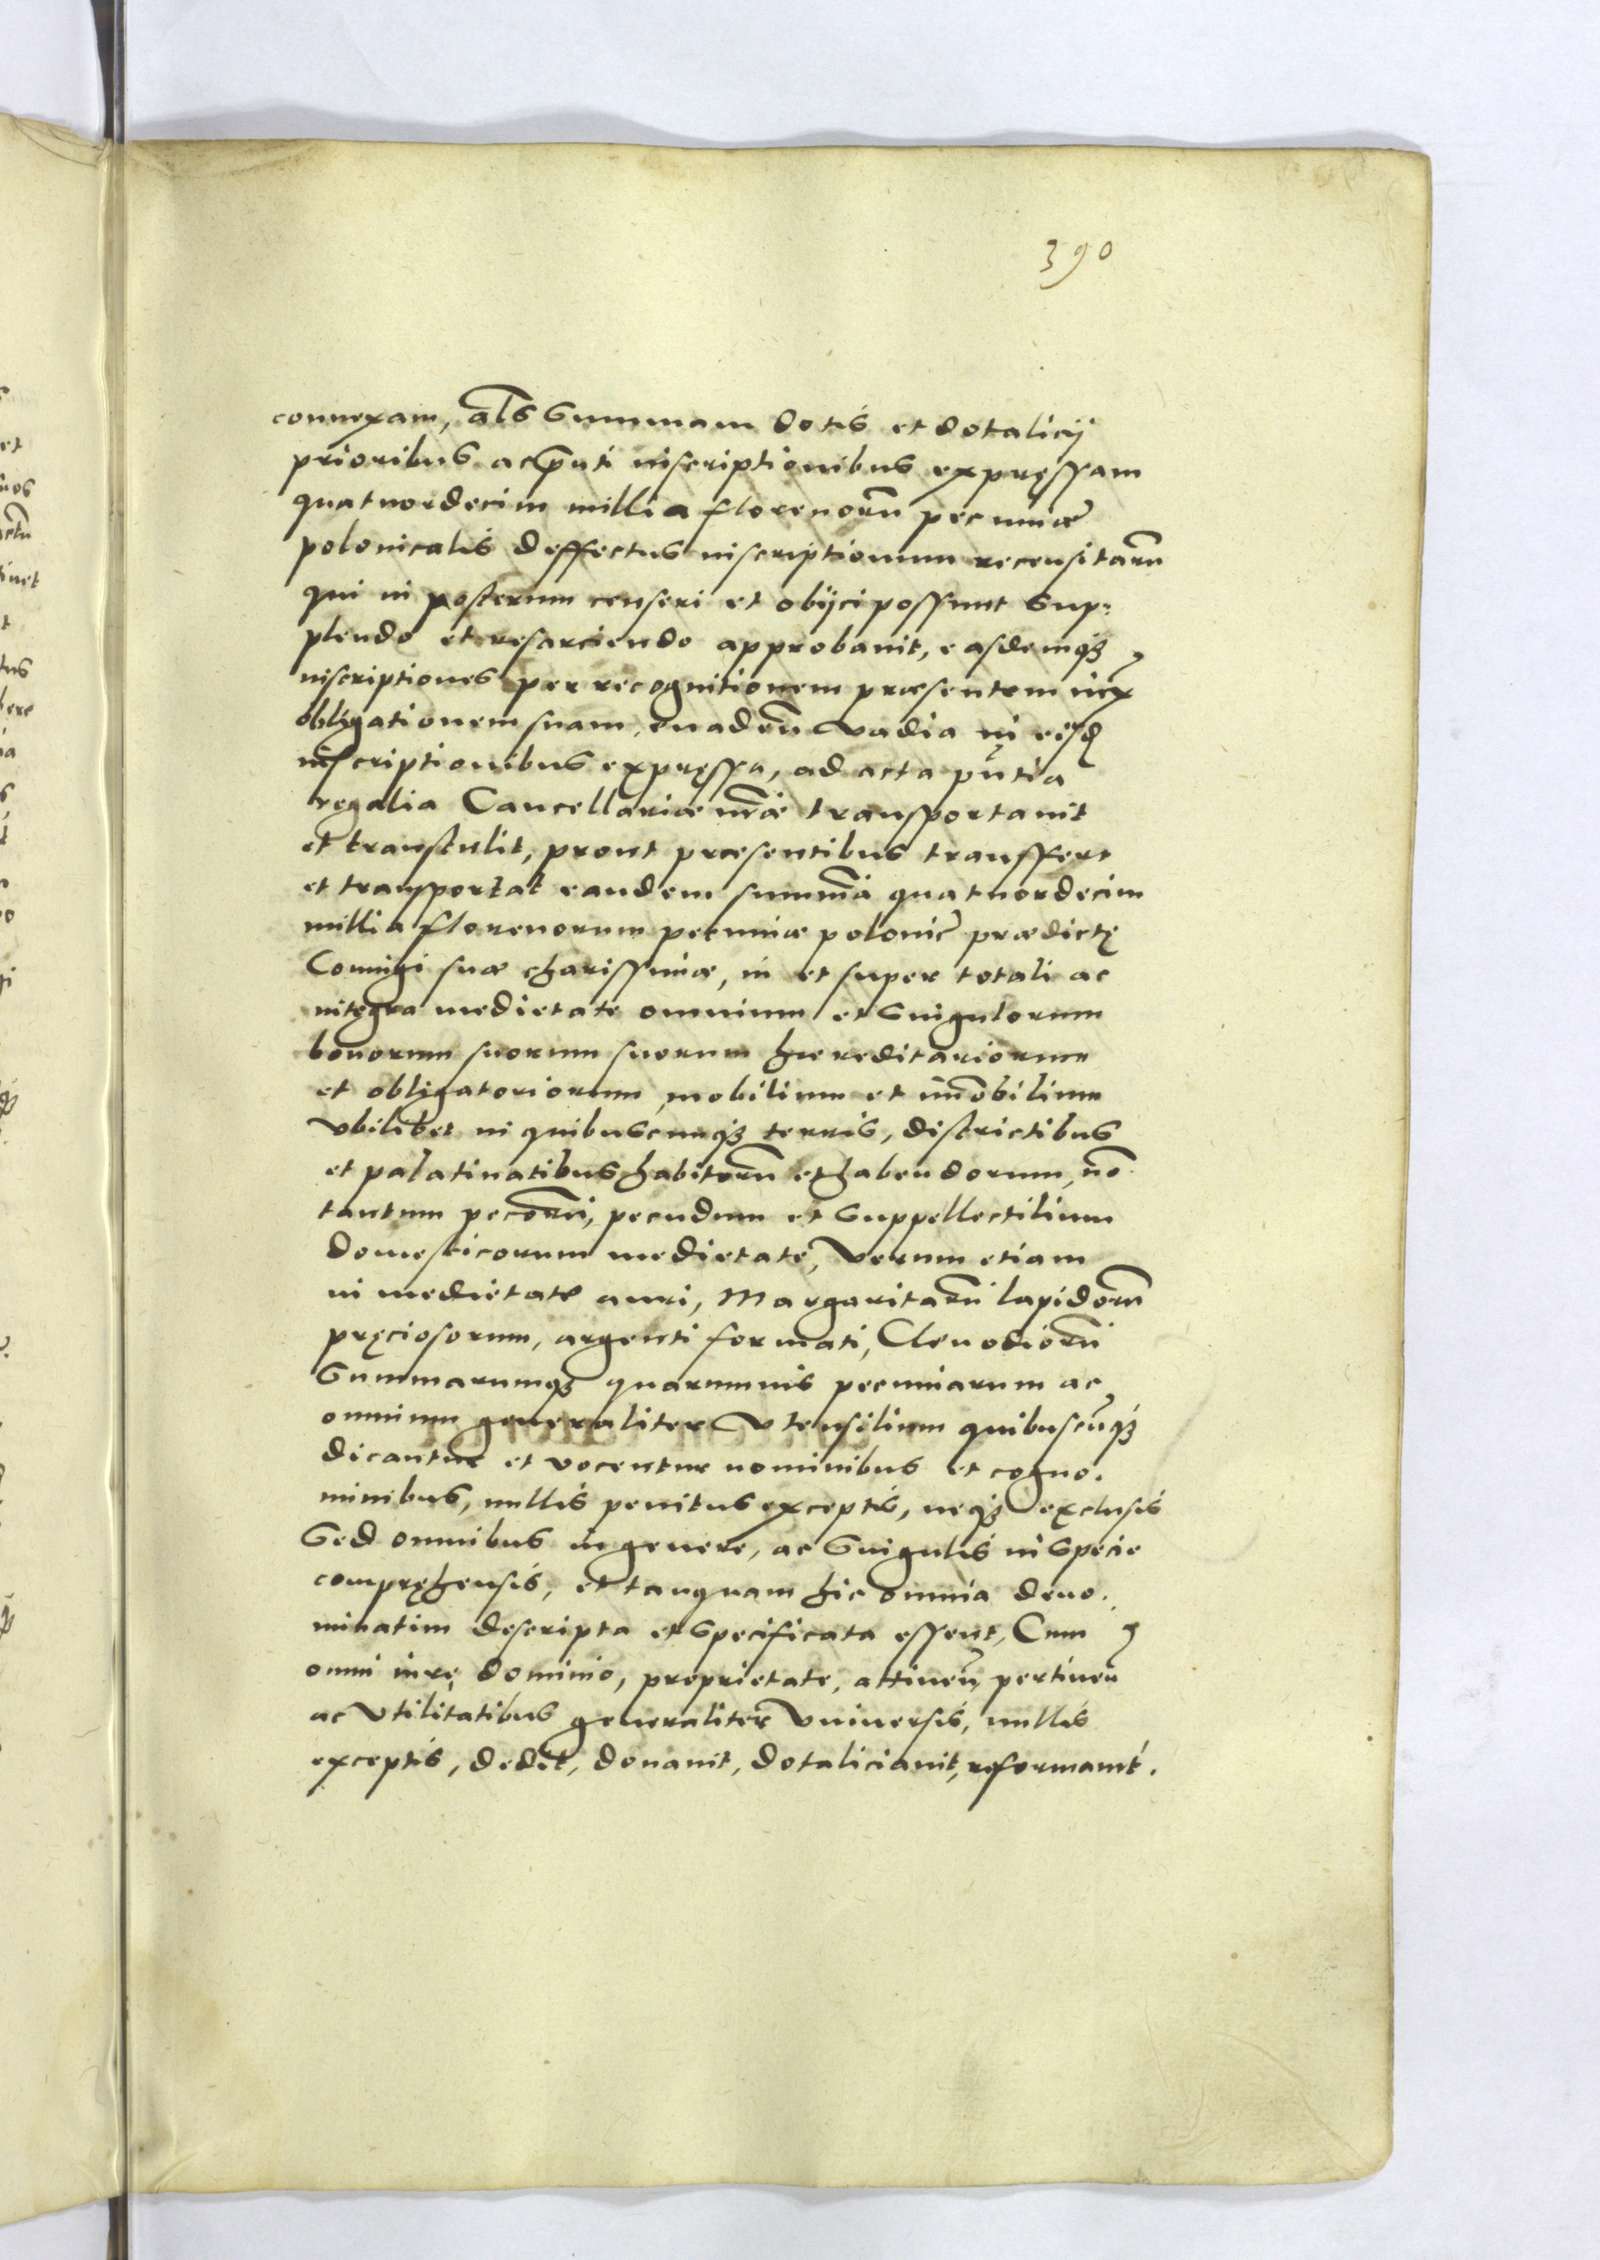 390
connexam, als Summam dotis et dotalicij
prioribus ac pnti inscriptionibus expręssam
quatuordecim millia florenorũ pecuniæ
polonicalis deffectus inscriptionum recensitarũ
qui in posterum censeri et obijci possunt Sup:
plendo et resarciendo approbauit, easdemqȝ
inscriptiones per recognitionem præsentem
obligationem suam, euadeñ vadia in eisd
inscriptionibus expręssa, ad acta pñtia
regalia Cancellariæ nr̃æ transportauit
et transtulit, prout præsentibus transffert
et transportat eandem summã quatuordecim
millia florenorum pecuniæ polonic prædictę
Coniugi suæ charissimæ, in et super totali ac
integra medietate omnium et Singulorum
bonorum suorum suorum hæreditariorum
et obligatoriorum, mobilium et im̃obilium
vbilibet in quibuscumqȝ terris, districtibus
et palatinatibus habitorũ et habendorum, nõ
tantum pecorũ, pecudum et Suppellectilium
domesticorum medietate, verum etiam
in medietate auri, Margaritarũ lapidorũ
pręciosorum, argenti formati, Clenodiorũ
Summarumqȝ quarumuis pecuniarum ac
omnium generaliter vtensilium quibuscũqȝ
dicantur et vocentur nominibus et cogno.
minibus, nullis penitus exceptis, neqȝ exclusis
Sed omnibus in genere, ac Singulis in Specie
compręhensis, et tanquam hic omnia deno.
minatim descripta et Specificata essent, Cum
omni iurę dominio, proprietate, attineñ pertineñ
ac vtilitatibus generaliter vniuersis, nullis
exceptis, dedit, donauit, dotaliciauit, reformauit.